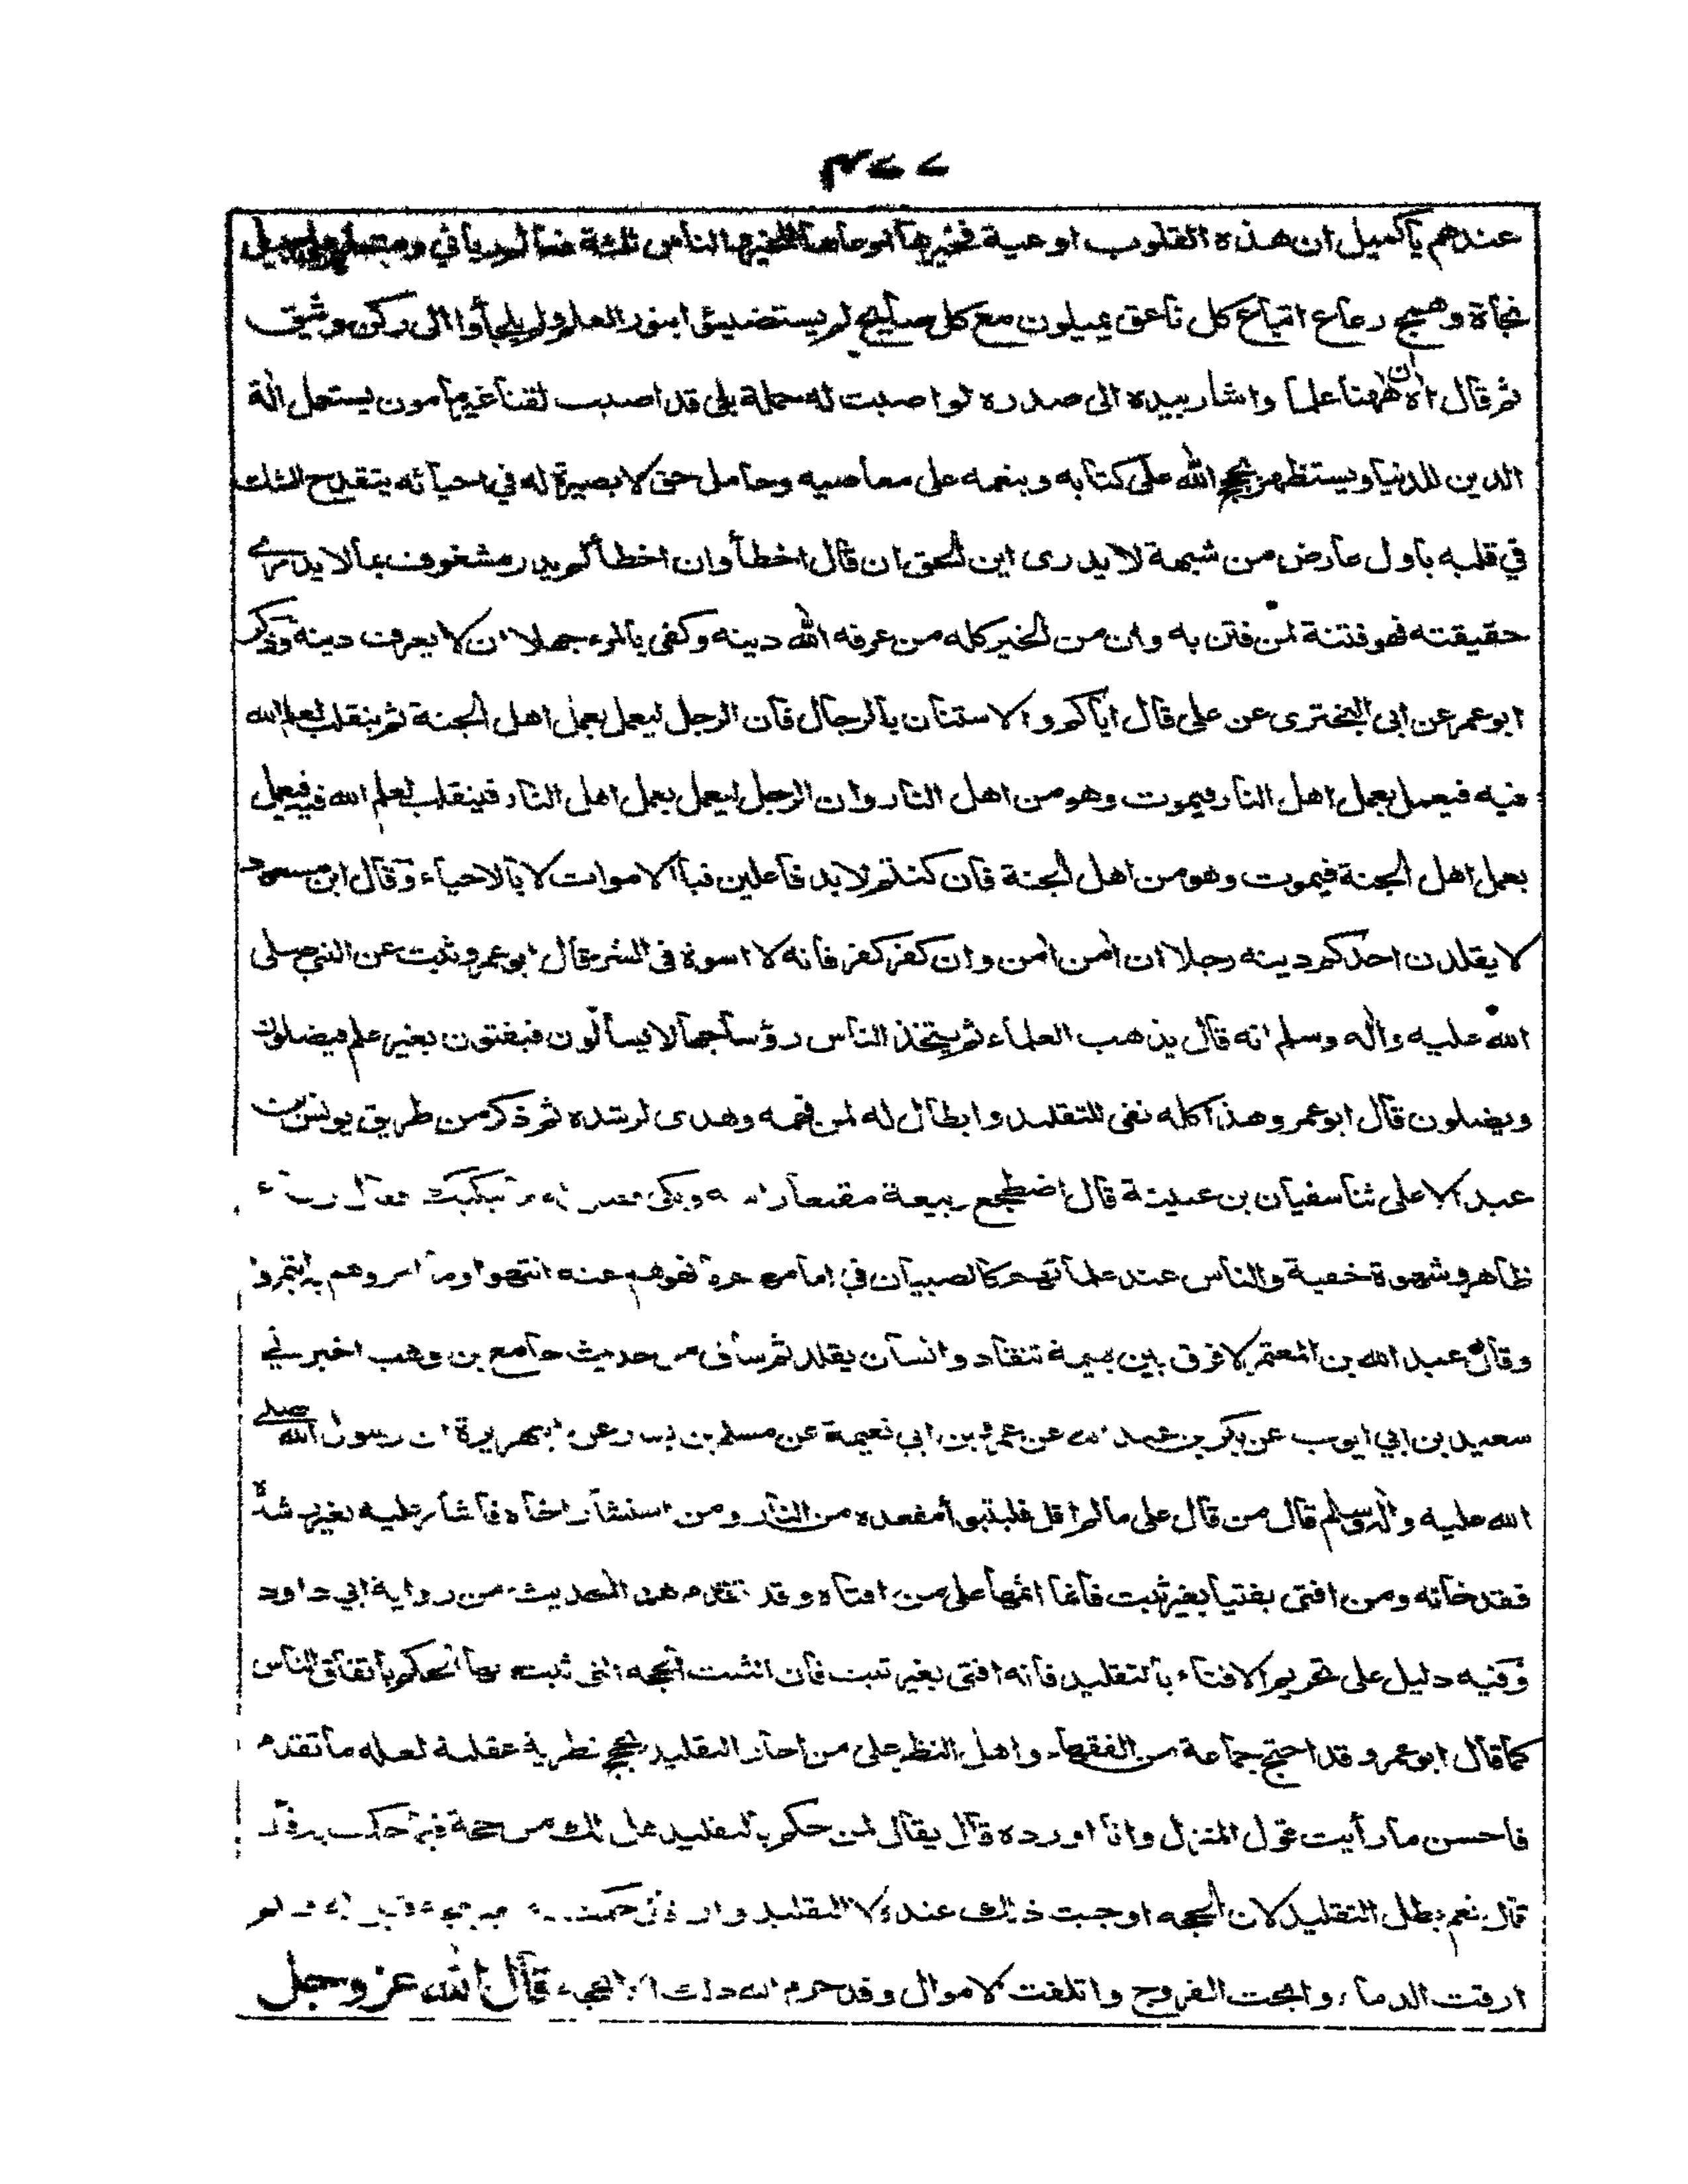 ٣٧٧
عندهم يا كميل ان هذه القلوب اوعية فخيرها اوعاها للخير والناس ثلثة فعالم رباني ومتعلم على سبيل
نجاة وهمج رعاع اتباع كل ناعق يميلون مع كل صايح لم يستضيئوا بنور العلم ولم يلجأوا الى ركن وثيق
ثم قال اه ان ههنا علما واشار بيده الى صدره لو اصبت له حملة بلى قد اصبت لقنا غير مأمون يستعمل الة
الدين للدنيا ويستظهر بحجج الله على كتابه وبنعمه على معاصيه وحامل حق لا بصيرة له في احيائه ينقدح الشك
في قلبه باول عارض من شبهة لا يدرى اين الحق ان قال اخطأ وان اخطأ لم يدر مشغوف بما لا يدرى
حقيقته فهو فتنة لمن فتن به وان من الخير كله من عرفه الله دينه وكفى بالمرء جهلا ان لا يعرف دينه وذكر
ابو عمر عن ابى البخترى عن على قال اياكم والاستنان بالرجال فان الرجل ليعمل بعمل اهل الجنة ثم ينقلب لعلم الله
فيه فيعمل بعمل اهل النار فيموت وهو من اهل النار وان الرجل ليعمل بعمل اهل النار فينقلب لعلم الله فيه فيعمل
بعمل اهل الجنة فيموت وهو من اهل الجنة فان كنتم لابد فاعلين فبالاموات لا بالاحياء وقال ابن مسعود
لا يقلدن احدكم دينه رجلا ان امن امن وان كفر كفر فانه لا اسوة فى الشر قال ابو عمر وثبت عن النبي صلى
الله عليه واله وسلم انه قال يذهب العلماء ثم يتخذ الناس رؤسا جهالا يسألون فيفتون بغير علم فيضلون
ويضلون قال ابو عمر وهذا كله نفى للتقليد وابطال له لمن فهمه وهدى لرشده ثم ذكر من طريق يونس بن
عبد الاعلى ثنا سفيان بن عيينة قال اضطجع ربيعة مقنعا راسه وبكى فقيل له ما يبكيك فقال رياء
ظاهر وشهوة خفية والناس عند علمائهم كالصبيان في امامهم ما نهوهم عنه انتهوا وما امروهم به ائتمروا
وقال عبد الله بن المعتمر لا فرق بين بهيمة تنقاد وانسان يقلد ثم ساق من حديث جامع بن وهب اخبرني
سعيد بن ابي ايوب عن بكر بن عبد الله عن عمرو بن ابي نعيمة عن مسلم بن يسار عن ابي هريرة ان رسول الله صلى
الله عليه واله وسلم قال من قال على ما لم اقل فليتبوأ مقعده من النار ومن استشار اخاه فاشار عليه بغير رشده
فقد خانه ومن افتى بفتيا بغير ثبت فانما اثمها على من افتاه وقد تقدم هذا الحديث من رواية ابي داود
وفيه دليل على تحريم الافتاء بالتقليد فانه افتى بغير ثبت فان الثبت الحجه التى ثبت بها الحكم باتفاق الناس
كما قال ابو عمر وقد احتج جماعة من الفقهاء واهل النظر على من اجاز التقليد بحجج نظرية عقلية لعله ما تقدم
فاحسن ما رأيت قول المتنزل وانا اورده قال يقال لمن حكم بالتقليد هل لك من حجة فيما حكمت به فان
قال نعم بطل التقليد لان الحجه اوجبت ذلك عنده لا التقليد وان قال حكمت بغير حجة قيل له فلم
ارقت الدماء وابحت الفروج واتلفت الاموال وقد حرم الله ذلك الا بحجة قال الله عز وجل